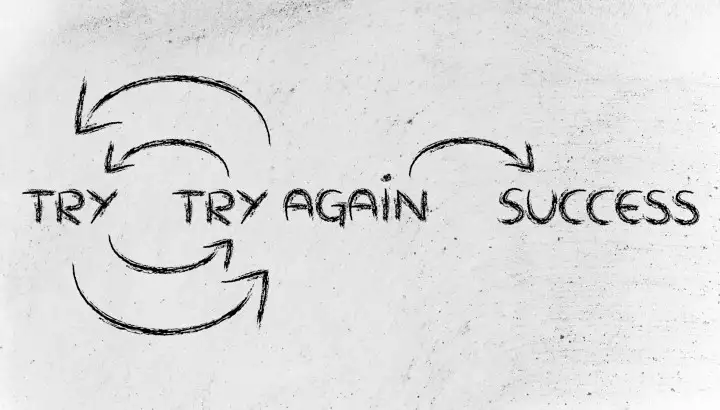 TRY TRY AGAIN SUCCESS